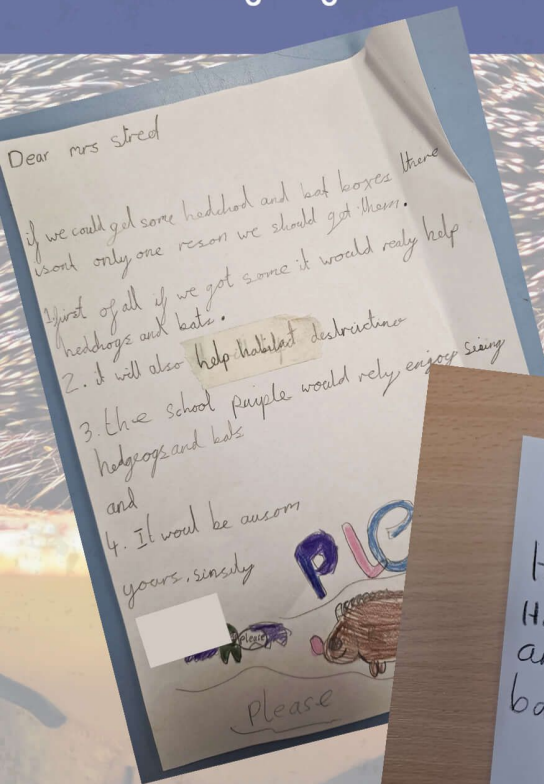 Dear mrs stred
if we could get some hedchod and bat boxes there
isont only one reson we should got them.
1 first of all if we got some it would realy help
hedchogs and bats.
2. it will also help habitat destructino
3. the school puiple would rely enjoy sieing
hedgeogs and bats
and
4. It woul be ausom
yours, sinsily
PLE
please
Please
H